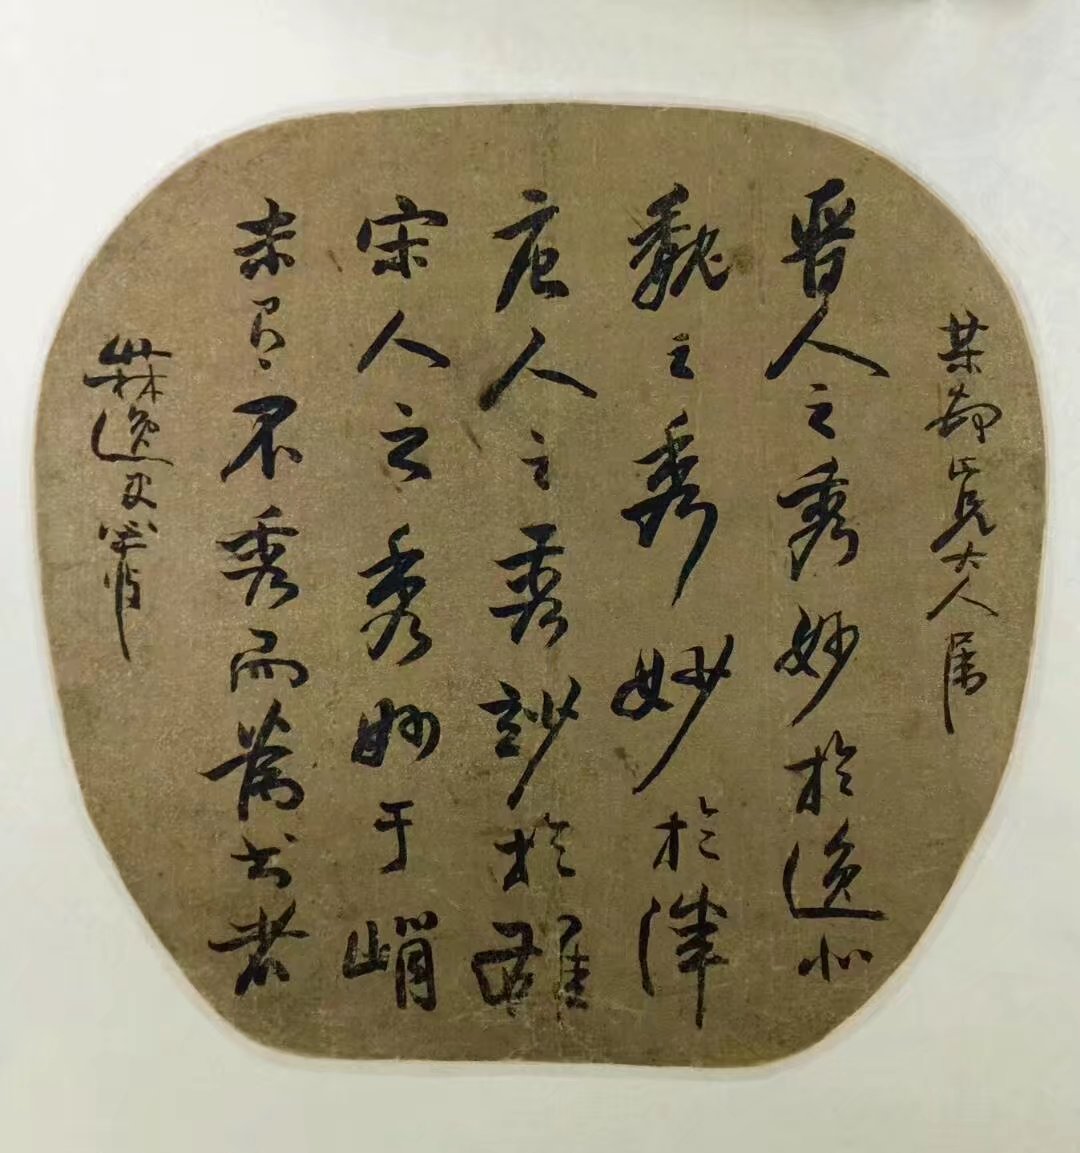 兄大人屬
晉人之秀妙於逸北
魏之秀妙於渾
唐人之秀妙於雄
宋人之秀妙于峭
未有不秀而為書者
逸叟